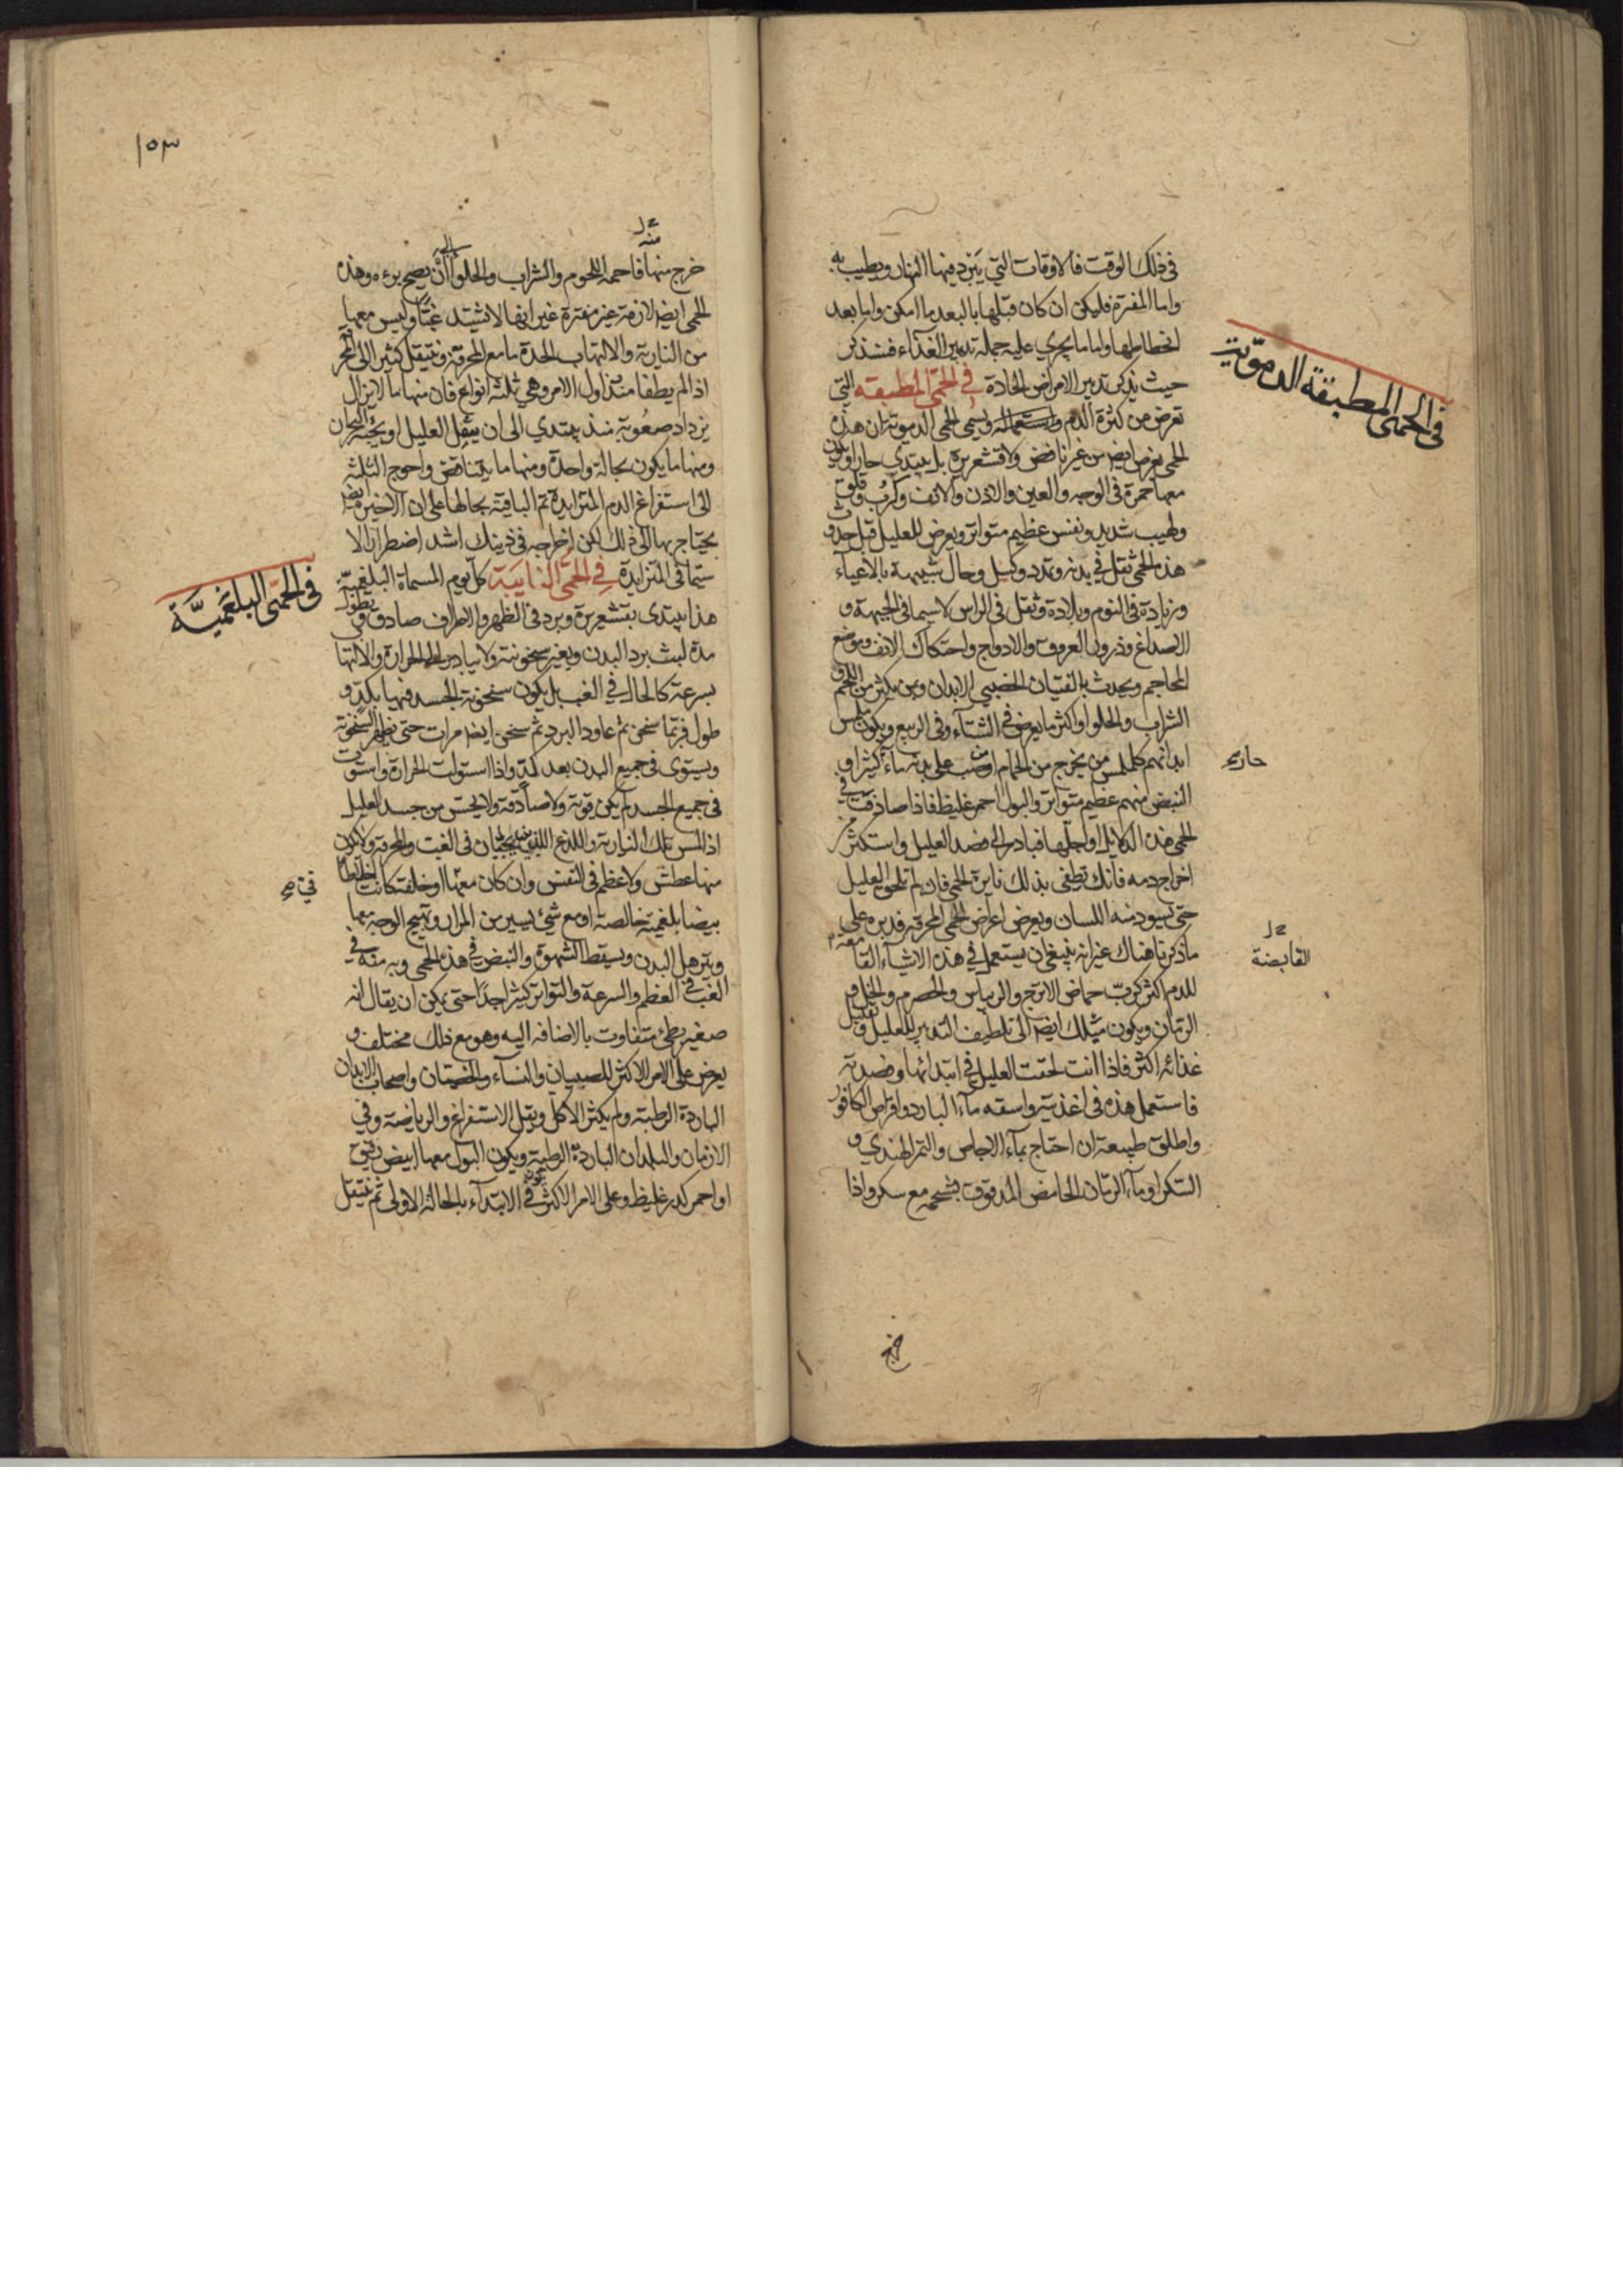 في ذلك الوقت فالاوقات التي يبرد فيها النهار ويطيب به
واما المفترة فليكن ان كان قبلها بالبعد ما امكن واما بعد
انحطاطها واما ما يجري عليه جملة تدبير الغذاء فسنذكر
حيث نذكر تدبير الامراض الحادة في الحمى المطبقة التي
تعرض من كثرة الدم واشتعاله ويسمى الحمى الدموية ان هذه
الحمى يعرض ايضا من غير نافض ولا قشعريرة بل يبتدي حارا ويكون
معها حمرة في الوجه والعين والاذن والانف وكرب وقلق
ولهيب شديد ونفس عظيم متواتر ويعرض للعليل قبل حدوث
هذه الحمى ثقل في بدنه وتمدد وكسل وحال شبيهة بالاعياء
وزيادة في النوم وبلادة وثقل في الراس لاسيما في الجبهة و
الاصداغ ودرور العروق والاوداج واحتكاك الانف وموضع
المحاجم ويحدث بالفتيان الخصبي الابدان ومن يكثر من اللحم و
الشراب والحلوا واكثر ما يعرض في الشتاء وفي الربيع ويكون ملمس
ابدانهم كملمس من يخرج من الحمام او من صب على بدنه ماء كثيرا و
النبض منهم عظيم متواتر والبول احمر غليظ فاذا صادفت في
الحمى هذه الدلايل او اجلها فبادر الى فصد العليل واستكثر من
اخراج دمه فانك تطفي بذلك نايرة الحمى فان لم تلحق العليل
حتى يسود منه اللسان ويعرض اعراض الحمى المحرقة فدبره على
ما ذكرنا هناك غير انه ينبغي ان يستعمل في هذه الاشياء القامعة
للدم اكثر كرب حماض الاترج والريباس والحصرم والخل و
الرمان ويكون ميلك ايضا الى تلطيف التدبير للعليل وتقليل
غذائه اكثر فاذا انت لحقت العليل في ابتدائها وفصدته
فاستعمل هذه في اغذيته واسقه ماء البارد واقراص الكافور
واطلق طبيعته ان احتاج بماء الاجاص والتمر الهندي و
السكر او ماء الرمان الحامض المدقوق بشحمه مع سكر واذا
في الحمى المطبقة الدموية
حار صح
القابضة
خرج
١٥٣
منه
خرج منها فاحمه اللحوم والشراب والحلوا الى ان يصح برءه وهذه
الحمى ايضا لازمة غير مفترة غير انها لا تشتد غبا وليس معها
من النارية والالتهاب الحدة ما مع المحرقة وينتقل كثيرا الى المحرقة
اذا لم يطفا منذ اول الامر وهي ثلثة انواع فان منها ما لا يزال
يزداد صعوبة منذ يبتدي الى ان يثقل العليل او يجيئه البحران
ومنها ما يكون بحالة واحدة ومنها ما يتناقص واحوج الثلثه
الى استفراغ الدم المتزايدة ثم الباقية بحالها على ان الاخيرة ايضا
يحتاج بها الى ذلك لكن اخراجه في ذينك اشد اضطرارا لا
سيما في المتزايدة في الحمى النايبة كل يوم المسماة البلغمية
هذا يبتدي بقشعريرة وبرد في الظهر والاطراف صادق ويطول
مدة لبث برد البدن وبغير سخونته ولا يبادر الحرارة والالتها
بسرعة كالحال في الغب بل يكون سخونة الجسد فيها بكد و
طول فربما سخن ثم عاود البرد ثم سخن ايضا مرات حتى يظهر السخونة
ويستوى في جميع البدن بعد كد واذا استولت الحرارة واستوت
في جميع الجسد لم يكن قوية ولا صادقة ولا يحس من جسد العليل
اذا لمس بتلك النارية واللذع اللذين يحسان في الغب والمحرقة ولا يكون
منها عطش ولا عظم في النفس وان كان معها او خلفت كانت اخلاطا
بيضا بلغمية خالصة او مع شيء يسير من المرار وتهيج الوجه معها
ويترهل البدن ويسقط الشهوة والنبض في هذه الحمى وبه منه في
الغب في العظم والسرعة والتواتر كثيرا جدا حتى يمكن ان يقال انه
صغير بطئ متفاوت بالاضافه اليه وهو مع ذلك مختلف و
يعرض على الامر الاكثر للصبيان والنساء والخصيان واصحاب الابدان
الباردة الرطبة ولم يكثر الاكل ويقل الاستفراغ والرياضة وفي
الازمان والبلدان الباردة الرطبة ويكون البول معها ابيض رقيق
او احمر كدر غليظ وعلى الامر الاكثر يكون في الابتداء بالحالة الاولى ثم ينتقل
في الحمى البلغمية
قيء صح